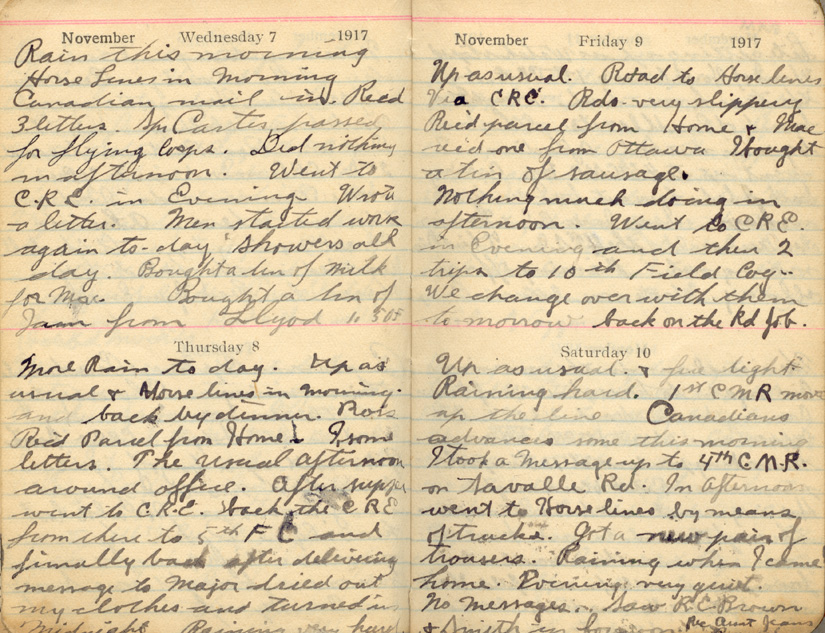 November Wednesday 7 1917
Rain this morning
Horse Lines in Morning
Canadian mail in. Recd
3 letters. Spr Carter passed
for flying Corps. Did nothing
in afternoon. Went to
C.R.E. in Evening Wrote
a letter. Men started work
again to-day Showers all
day. Bought a tin of milk
for Mac Bought a tin of
Jam from Llyod
Thursday 8
More Rain to day. Up as
usual & Horse lines in morning.
and back by dinner.
Recd Parcel from Home & some
letters. The usual afternoon
around office. After supper
went to C.R.E. back the CRE
from there to 5th F C and
finally back after delivering
message to Major dried out
my clothes and turned in
Midnight Raining very hard
November Friday 9 1917
Up as usual. Road to Horse lines
Via CRE. Rds. very slippery
Rec'd parcel from Home & Mac
recd one from Ottawa I bought
a tin of sausage.
Nothing much doing in
afternoon. Went to C.R.E.
in Evening and then 2
trips to 10th Field Coy.
We change over with them
to-morrow back on the Rd Job.
Saturday 10
Up as usual. &
Raining hard. 1st C M R move
up the line Canadians
advances some this morning
I took a Message up to 4th C.M.R.
on Savalle Rd. In Afternoon
went to Horse lines by means
of trucks. Got a new pair of
trousers. Raining when I came
home. Evening very quiet.
No Messages. Saw R.C. Brown
& Smith
Rec Aunt Jeans